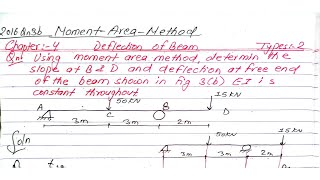 2016 Qn3b Moment-Area-Method
Chapter:-4 Deflection of Beam Types:-2
Qn: Using moment area method, determin the
slope at B & D and deflection at free end
of the beam shown in fig 3(b) E.I is
constant throughout
50kN 15kN
A C B D
3m 3m 2m
Sol^n
50kN 15kN
3m 3m 2m